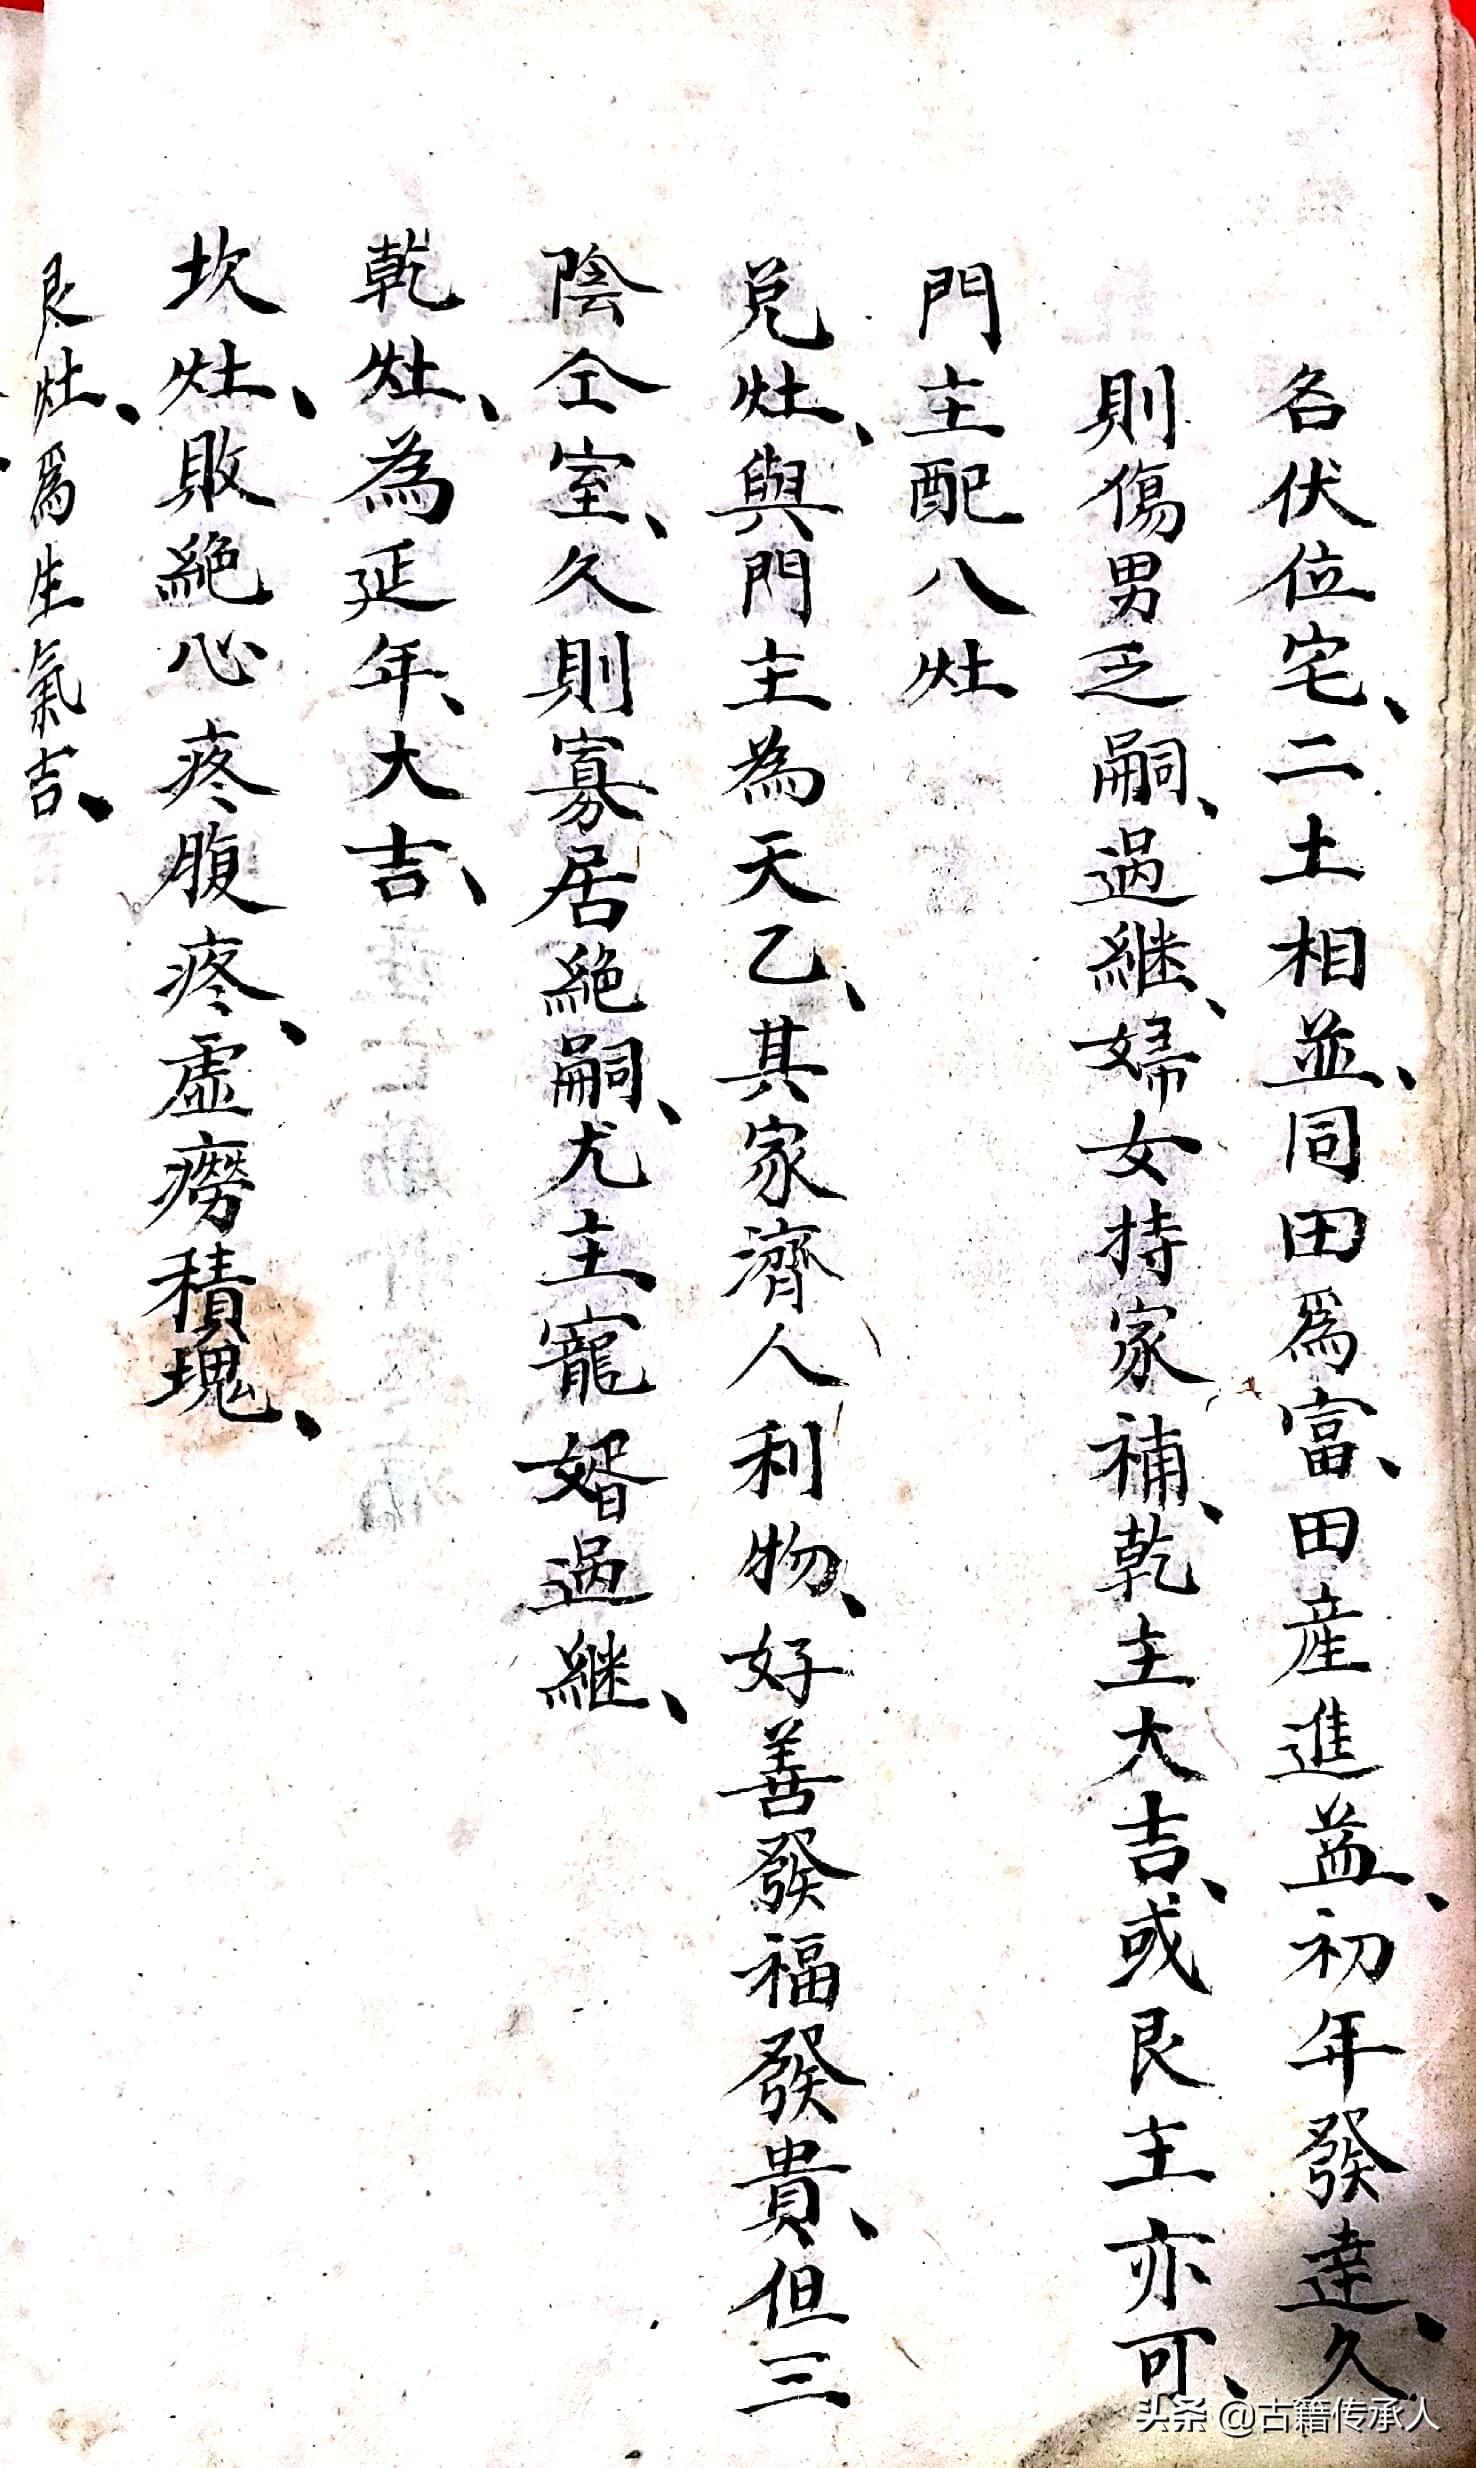 名伏位宅、二土相並、同田爲富、田産進益、初年發達、久
則傷男乏嗣、過継、婦女持家補、乾主大吉、或艮主亦可、
門主配八灶
兑灶、與門主為天乙、其家濟人利物、好善發福發貴、但三
陰仝室、久則寡居絶嗣、尤主寵婿過継、
乾灶、為延年、大吉、
坎灶、敗絶心疼腹疼、虛癆積塊、
艮灶、爲生氣吉、
头条 @古籍传承人